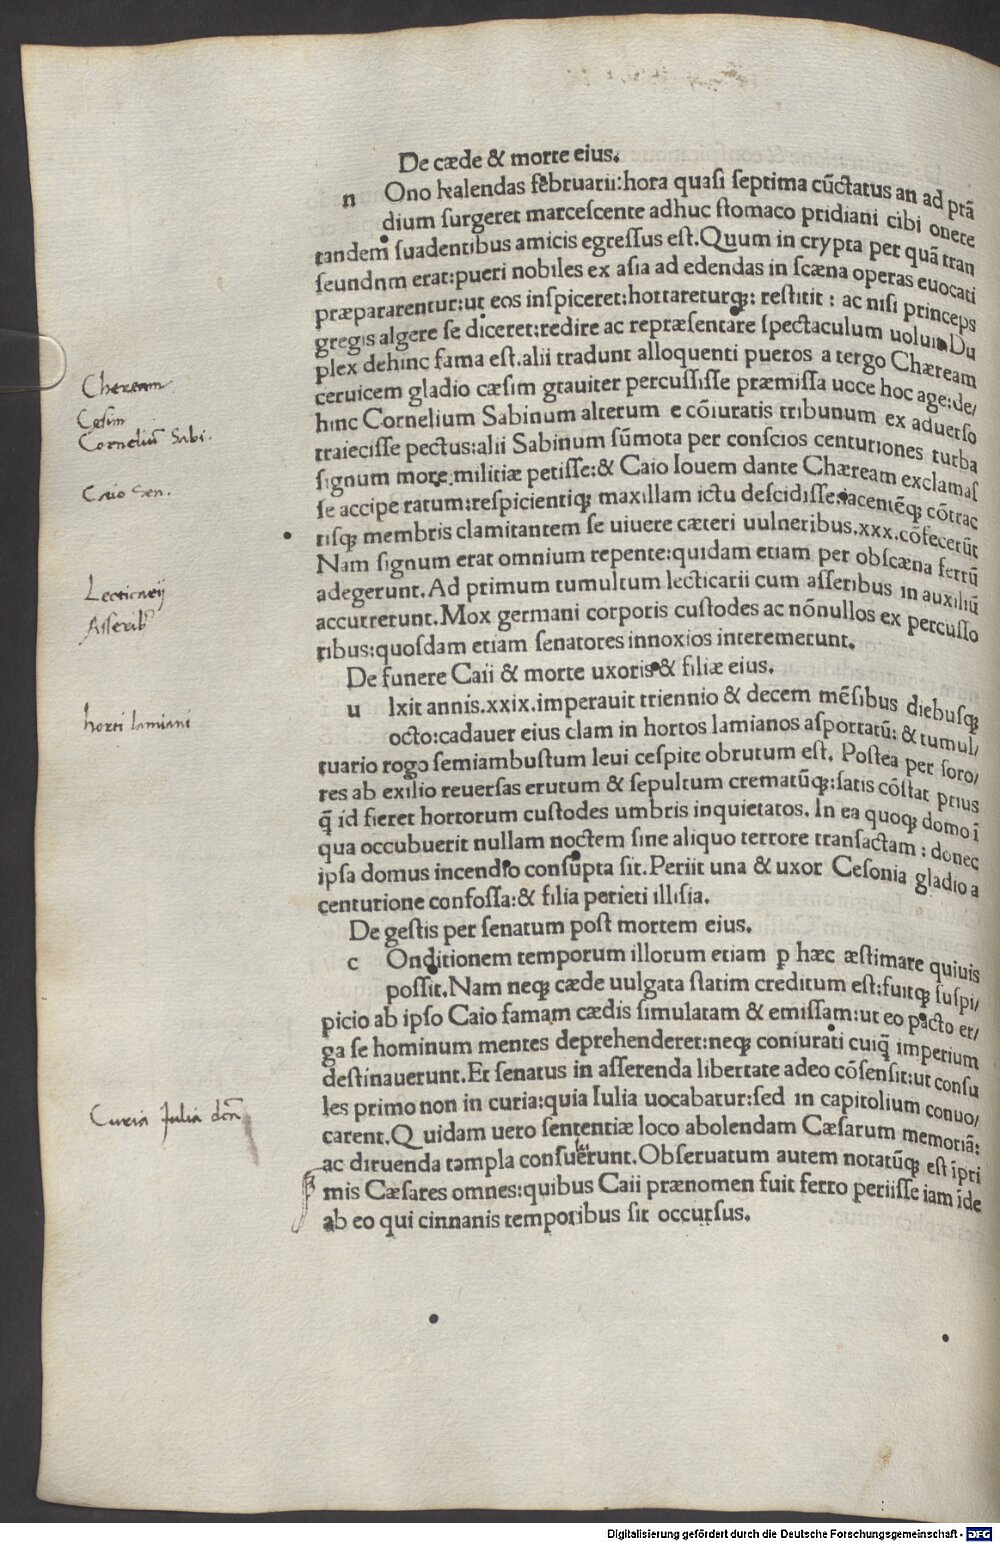 De cæde & morte eius.
n Ono kalendas februarii:hora quasi septima cūctatus an ad prā
dium surgeret marcescente adhuc stomaco pridiani cibi onere
tandem suadentibus amicis egressus est.Quum in crypta per quā tran
seundum erat:pueri nobiles ex asia ad edendas in scæna operas euocati
præpararentur:ut eos inspiceret:hortareturqꝫ: restitit: ac nisi princeps
gregis algere se diceret:redire ac repræsentare spectaculum uoluit.Du
plex dehinc fama est.alii tradunt alloquenti pueros a tergo Chæream
ceruicem gladio cæsim grauiter percussisse præmissa uoce hoc age:de/
hinc Cornelium Sabinum alterum e cōiuratis tribunum ex aduerso
traiecisse pectus:alii Sabinum sūmota per conscios centuriones turba
signum more militiæ petisse:& Caio Iouem dante Chæream exclamas
se accipe ratum:respicientiqꝫ maxillam ictu descidisse:iacentēqꝫ cōtrac
tisqꝫ membris clamitantem se uiuere cæteri uulneribus.xxx.cōfecerūt
Nam signum erat omnium repente:quidam etiam per obscæna ferrū
adegerunt.Ad primum tumultum lecticarii cum asseribus in auxiliū
accurrerunt.Mox germani corporis custodes ac nōnullos ex percusso
ribus:quosdam etiam senatores innoxios interemerunt.
De funere Caii & morte uxoris & filiæ eius.
u Ixit annis.xxix.imperauit triennio & decem mēsibus diebusqꝫ
octo:cadauer eius clam in hortos lamianos asportatū: & tumul/
tuario rogo semiambustum leui cespite obrutum est. Postea per soro/
res ab exilio reuersas erutum & sepultum crematūqꝫ:satis cōstat prius
q̄ id fieret hortorum custodes umbris inquietatos. In ea quoqꝫ domo ī
qua occubuerit nullam noctem sine aliquo terrore transactam: donec
ipsa domus incendio consūpta sit.Periit una & uxor Cesonia gladio a
centurione confossa:& filia perieti illisia.
De gestis per senatum post mortem eius.
c Onditionem temporum illorum etiam ꝑ hæc æstimare quiuis
possit.Nam neqꝫ cæde uulgata statim creditum est:fuitqꝫ suspi/
picio ab ipso Caio famam cædis simulatam & emissam:ut eo pacto er/
ga se hominum mentes deprehenderet:neqꝫ coniurati cuiq̄ imperium
destinauerunt.Et senatus in asserenda libertate adeo cōsensit:ut consu
les primo non in curia:quia Iulia uocabatur:sed in capitolium conuo/
carent.Quidam uero sententiæ loco abolendam Cæsarum memoriā:
ac diruenda templa consuerunt.Obseruatum autem notatūqꝫ est īpri
mis Cæsares omnes:quibus Caii prænomen fuit ferro periisse iam īde
ab eo qui cinnanis temporibus sit occursus.
Cheream
Cesim
Corneliū Sabi.
Caio
horti lamiani
Curia Julia
Digitalisierung gefördert durch die Deutsche Forschungsgemeinschaft - DFG